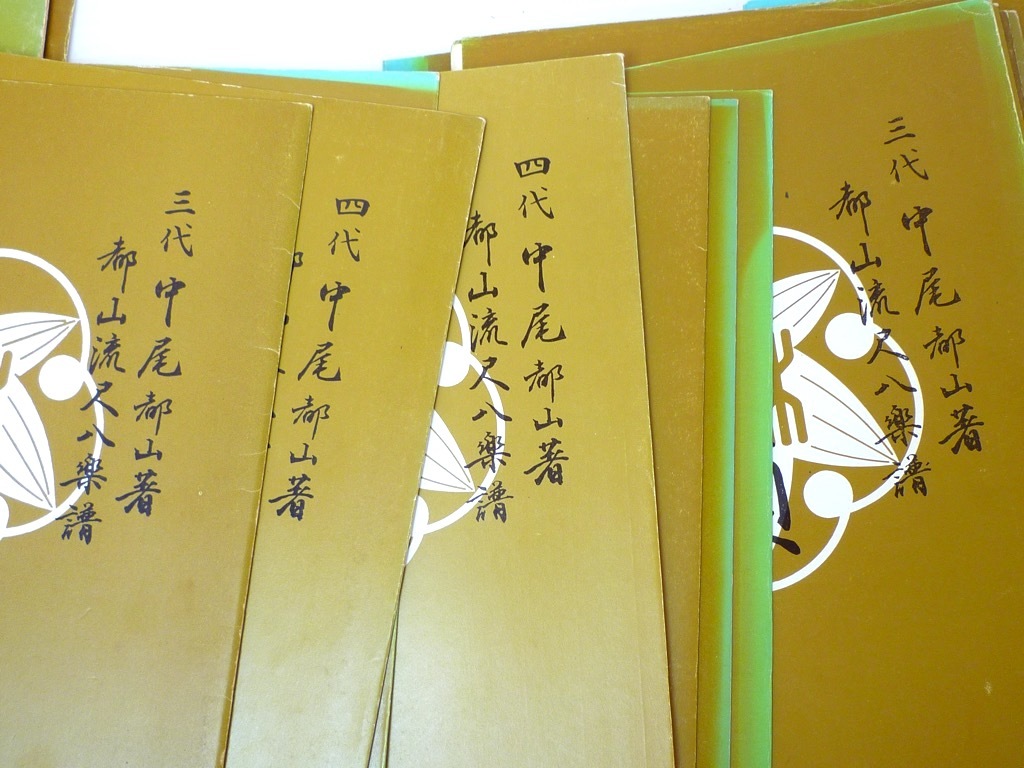 三代 中尾都山著
都山流尺八樂譜
四代 中尾都山著
四代 中尾都山著
都山流尺八樂譜
三代 中尾都山著
都山流尺八樂譜